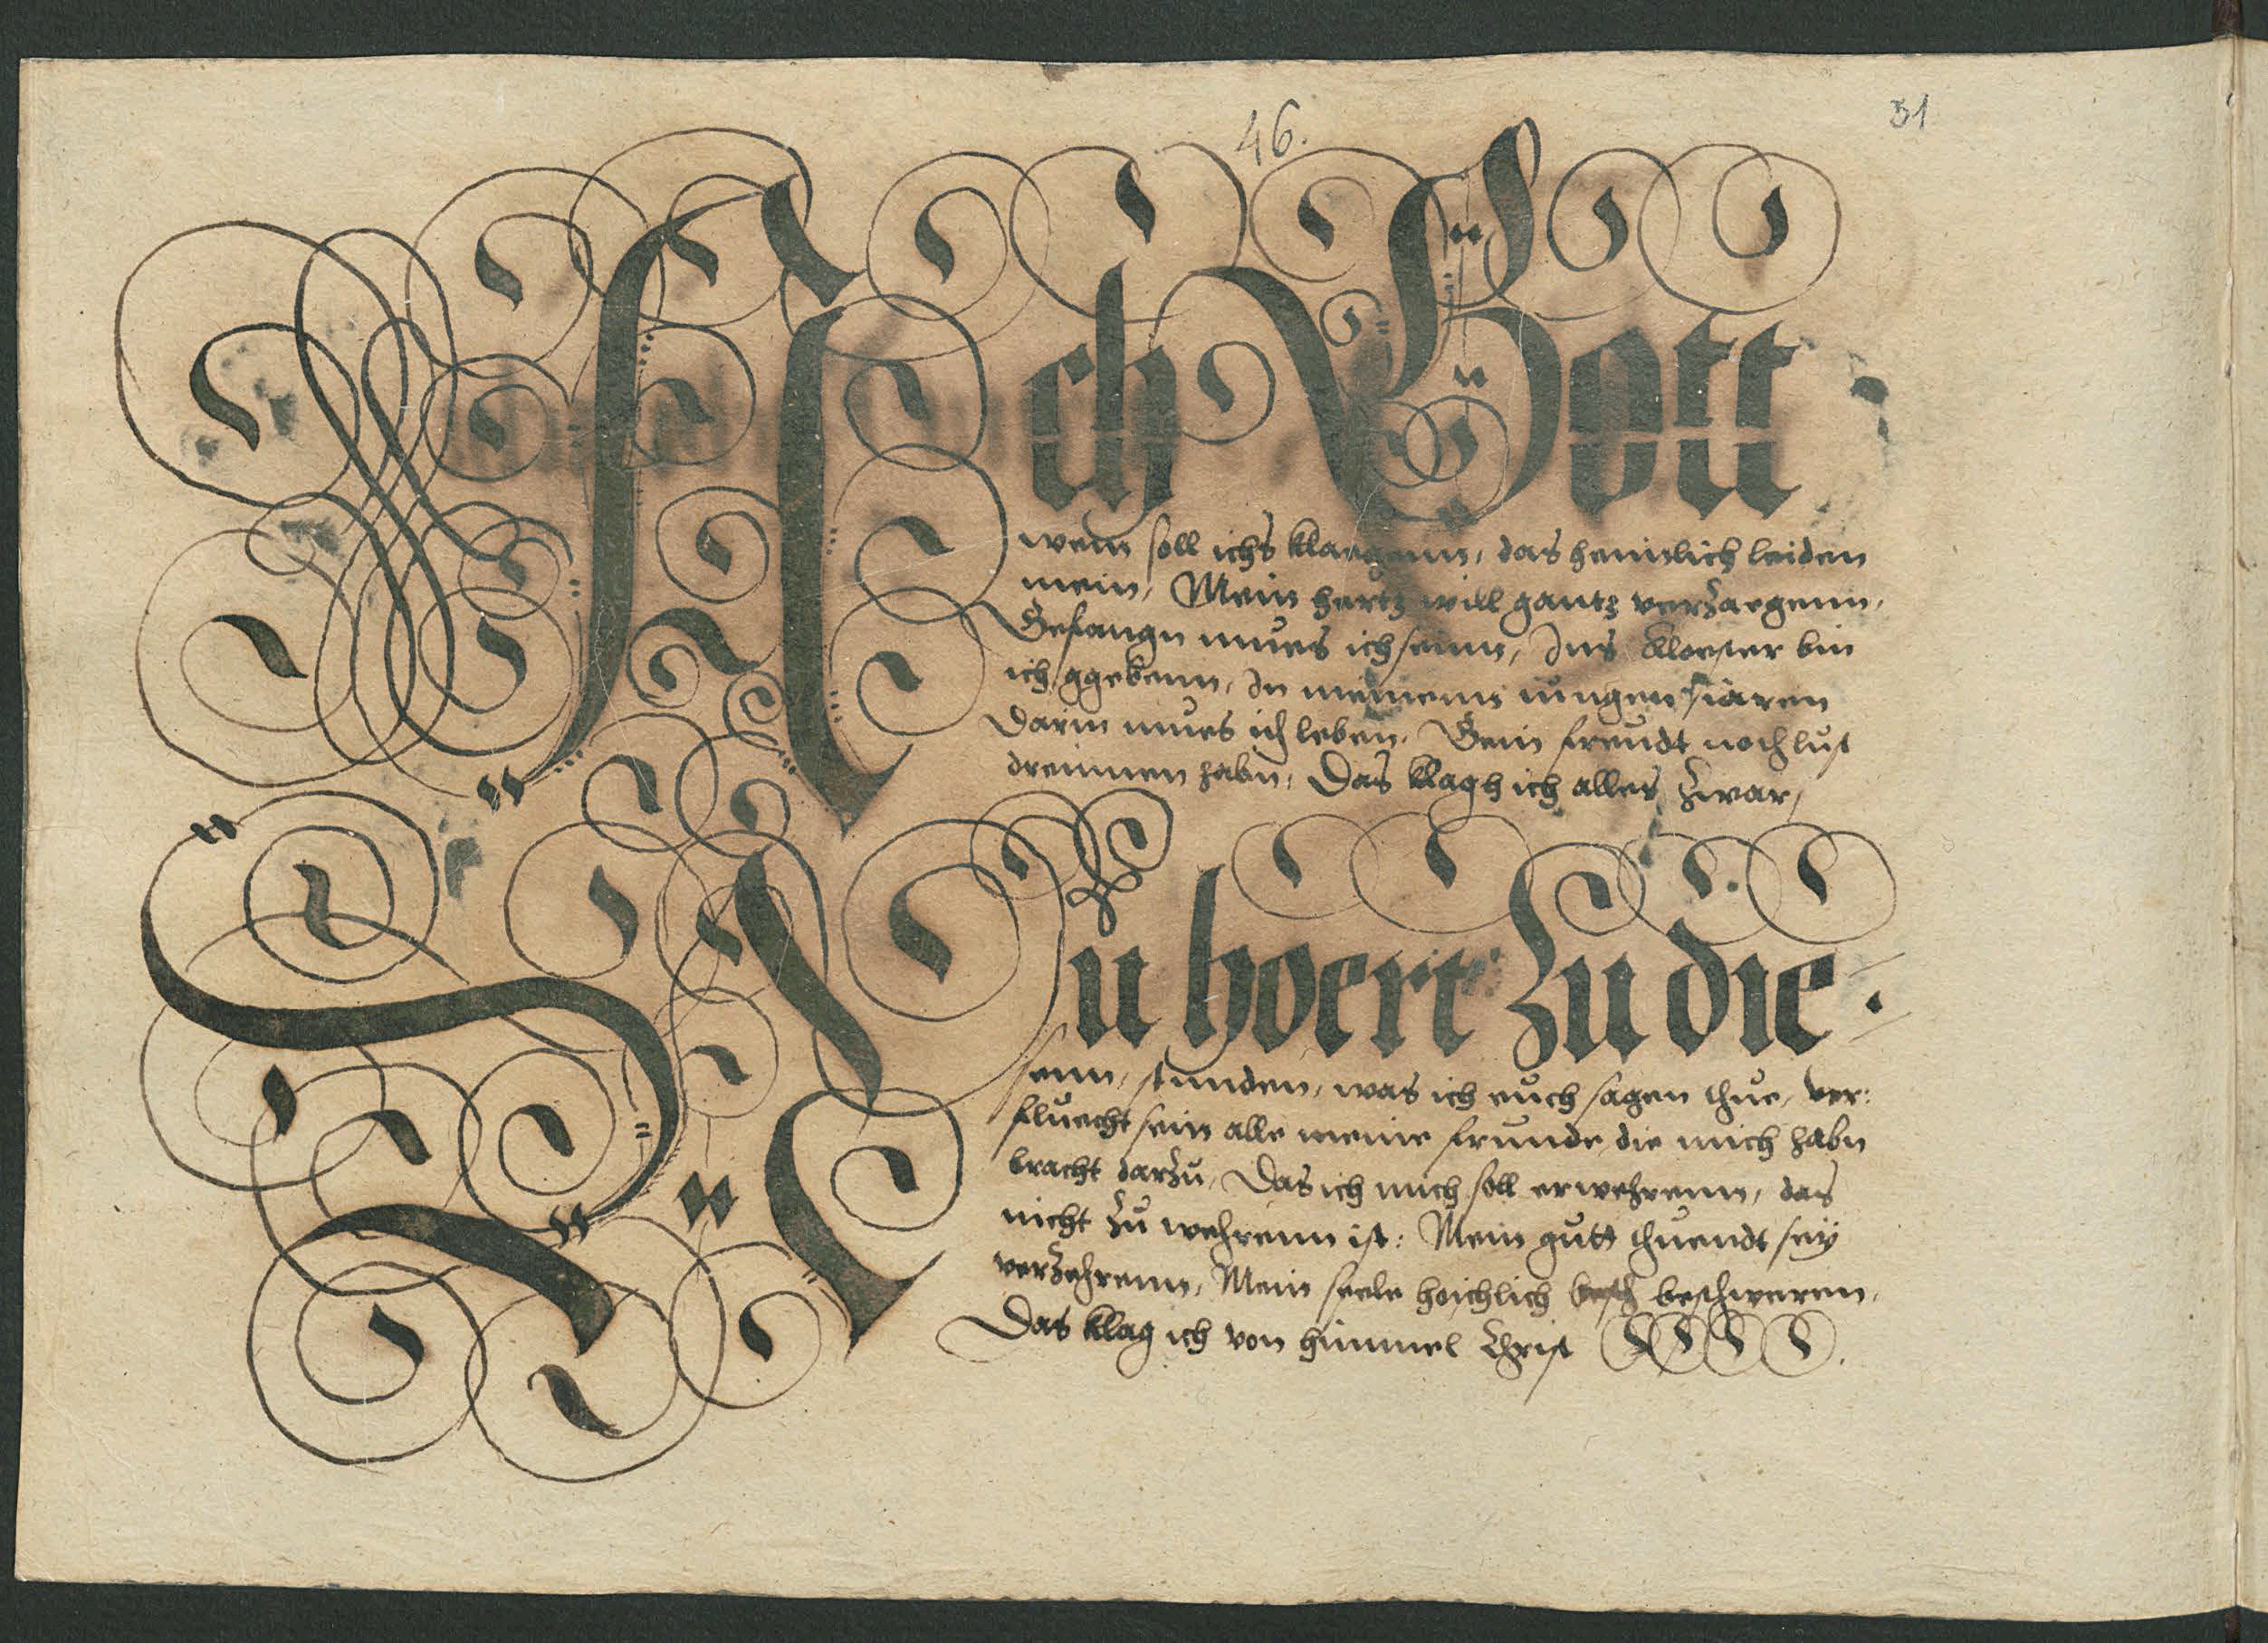 46.
51
Ach Gott
wem soll ichs klaegenn, das heimlich leiden
mein, Mein hertz will gantz verzaegenn,
Gefangn mues ich seinn, Ins kloester bin
ich ggebenn, In meinem iungen iaren
Darin mues ich leben, Gein freudt noch lust
dreinnen habn, Das klagh ich alles zwar,
Nu hoert zu die
senn, stunden, was ich euch sagen thue, ver:
fluecht sein alle meine frunde die mich habn
bracht darzu, Das ich mich soll erwehrenn, das
nicht zu wehrenn ist: Mein gutt thuendt sey
verzehrenn, Mein seele hoichlich besch beschweren,
Das klag ich von himmel Christ